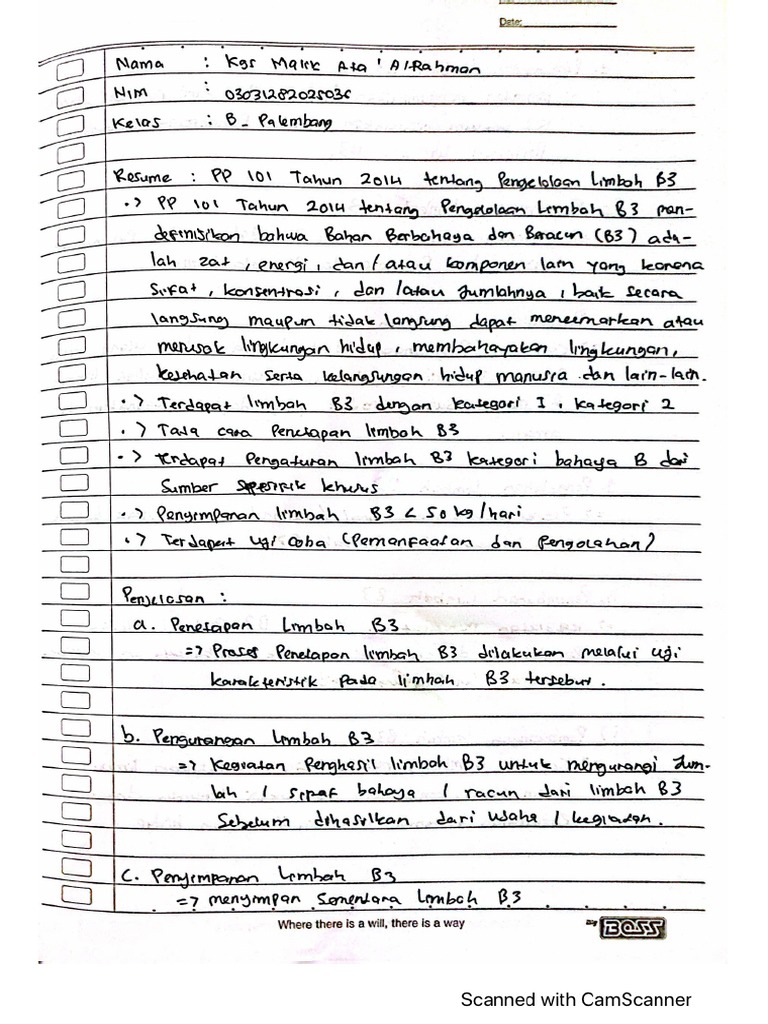 Date:
Nama : Kgs Malik Ata' Al-Rahman
Nim : 03031282025036
Kelas : B - Palembang
Resume : PP 101 Tahun 2014 tentang Pengelolaan Limbah B3
.> PP 101 Tahun 2014 tentang Pengelolaan Limbah B3 men-
definisikan bahwa Bahan Berbahaya dan Beracun (B3) ada-
lah zat, energi, dan/atau komponen lain yang karena
sifat, konsentrasi, dan/atau Jumlahnya, baik secara
langsung maupun tidak langsung dapat mencemarkan atau
merusak lingkungan hidup, membahayakan lingkungan,
kesehatan serta kelangsungan hidup manusia dan lain-lain.
.> Terdapat limbah B3 dengan kategori 1, kategori 2
.> Tata cara Penetapan limbah B3
.> Terdapat Pengaturan limbah B3 kategori bahaya B dari
Sumber spesifik khusus
.> Penyimpanan limbah B3 < 50 kg/hari
.> Terdapat uji coba (Pemanfaatan dan Pengolahan)
Penjelasan :
a. Penetapan Limbah B3
=> Proses Penetapan limbah B3 dilakukan melalui uji
karakteristik pada limbah B3 tersebut.
b. Pengurangan Limbah B3
=> Kegiatan Penghasil limbah B3 untuk mengurangi Jum-
lah / sifat bahaya / racun dari limbah B3
Sebelum dihasilkan dari usaha / kegiatan.
C. Penyimpanan Limbah B3
=> menyimpan Sementara Limbah B3
Where there is a will, there is a way
By BOSS
Scanned with CamScanner